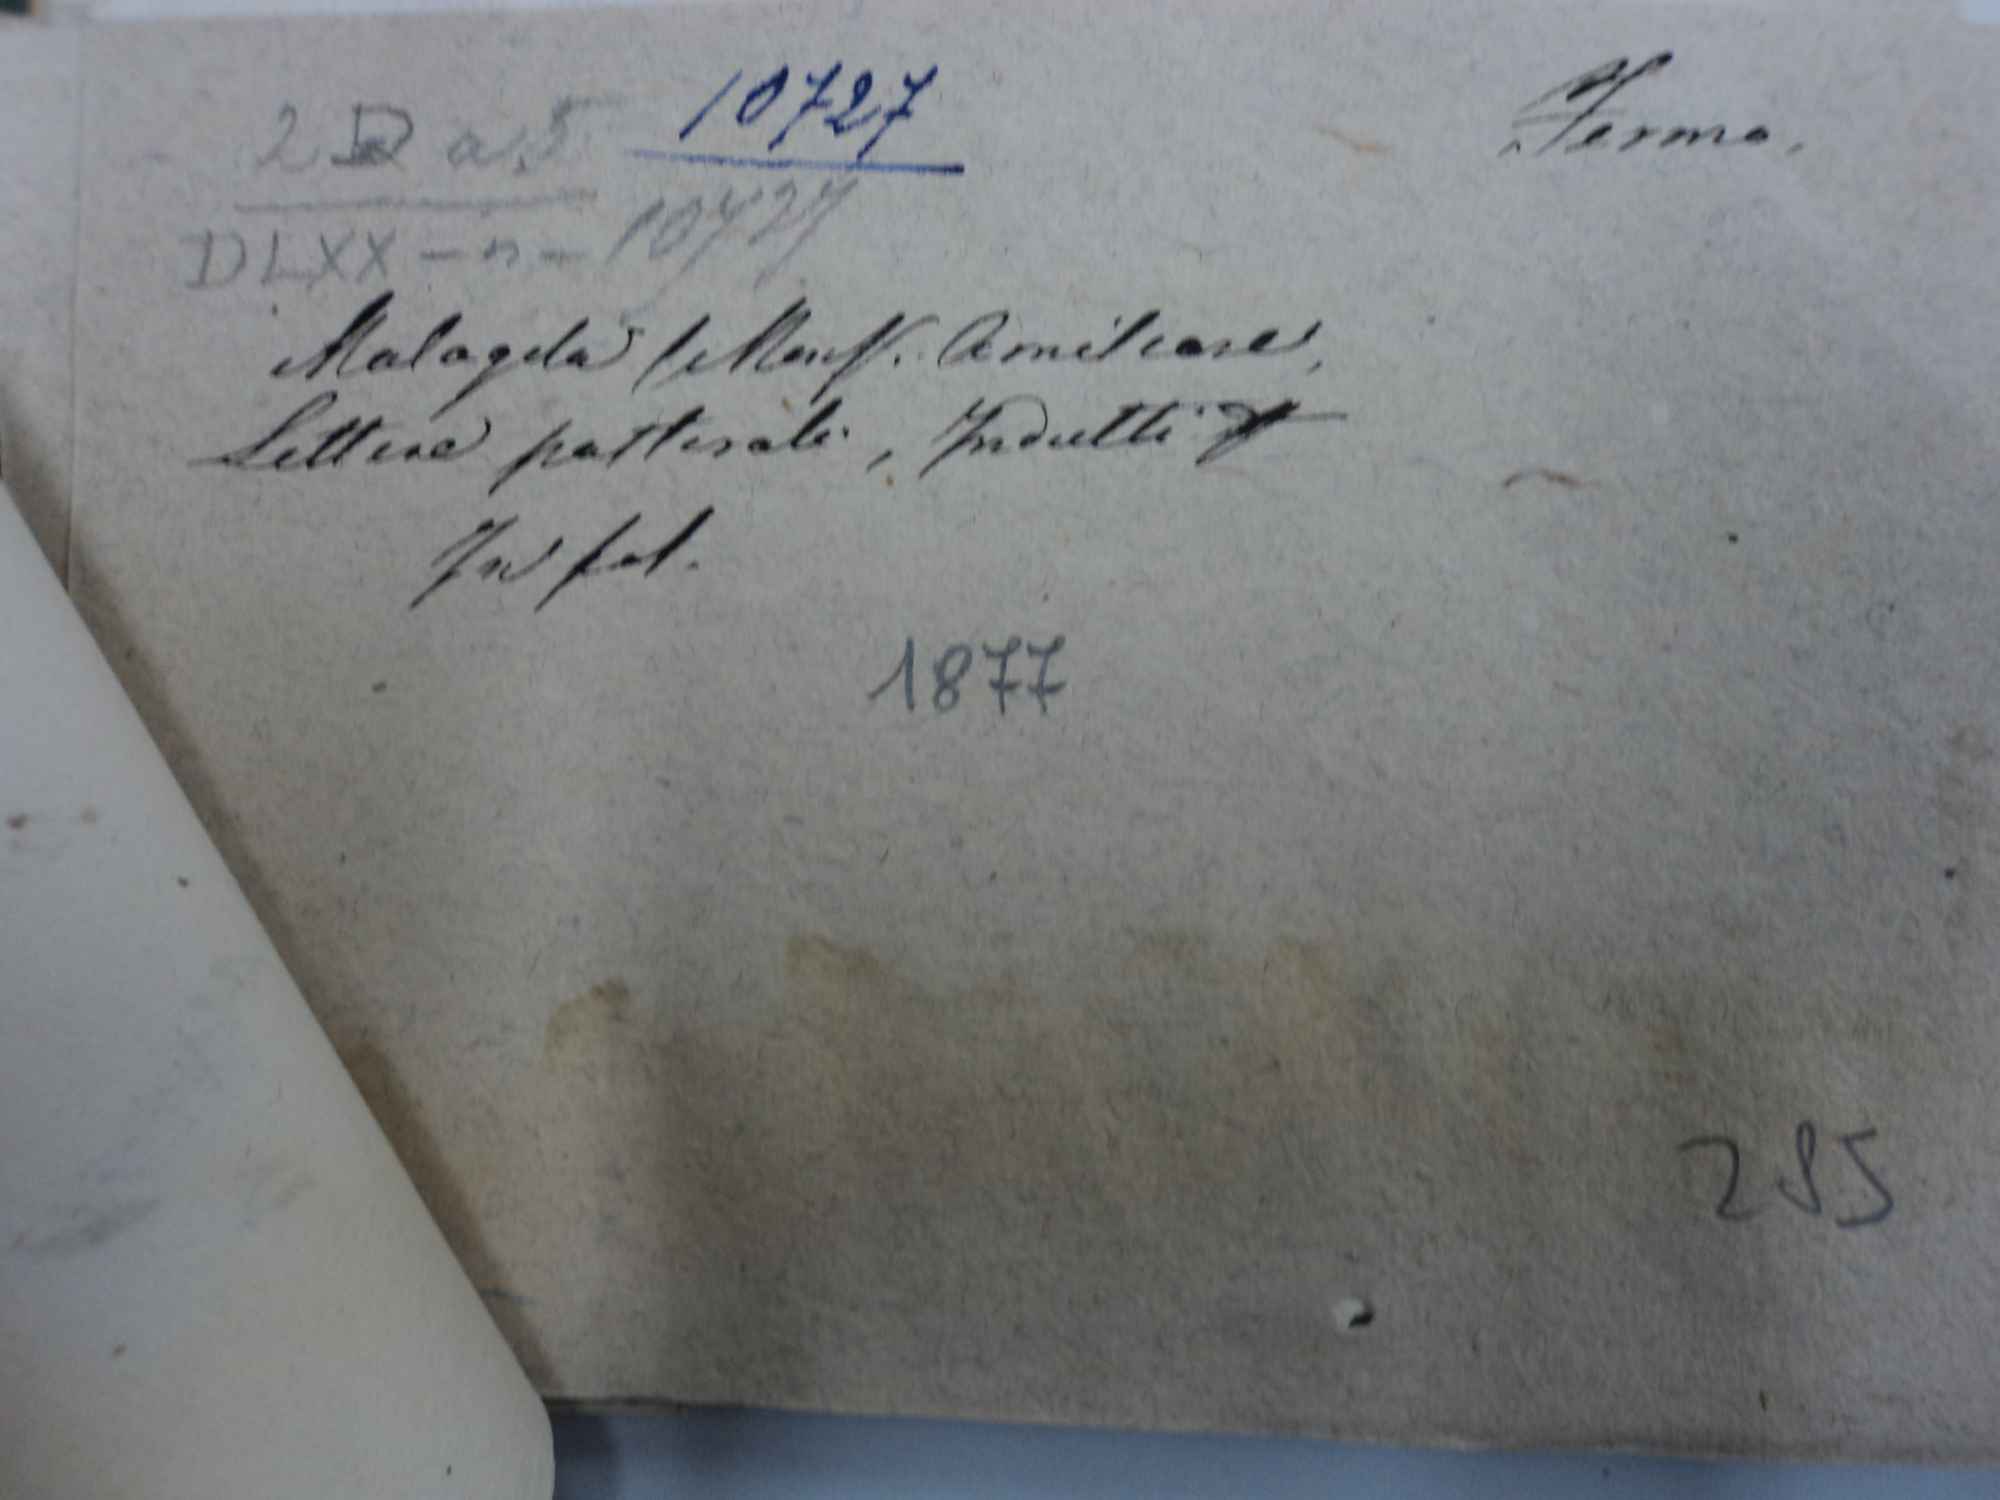 10727
Fermo.
2 D a 5
DLXX - n - 10727
Malagola (Mons. Amilcare),
Lettere pastorali, Indulti
In fol.
1877
295